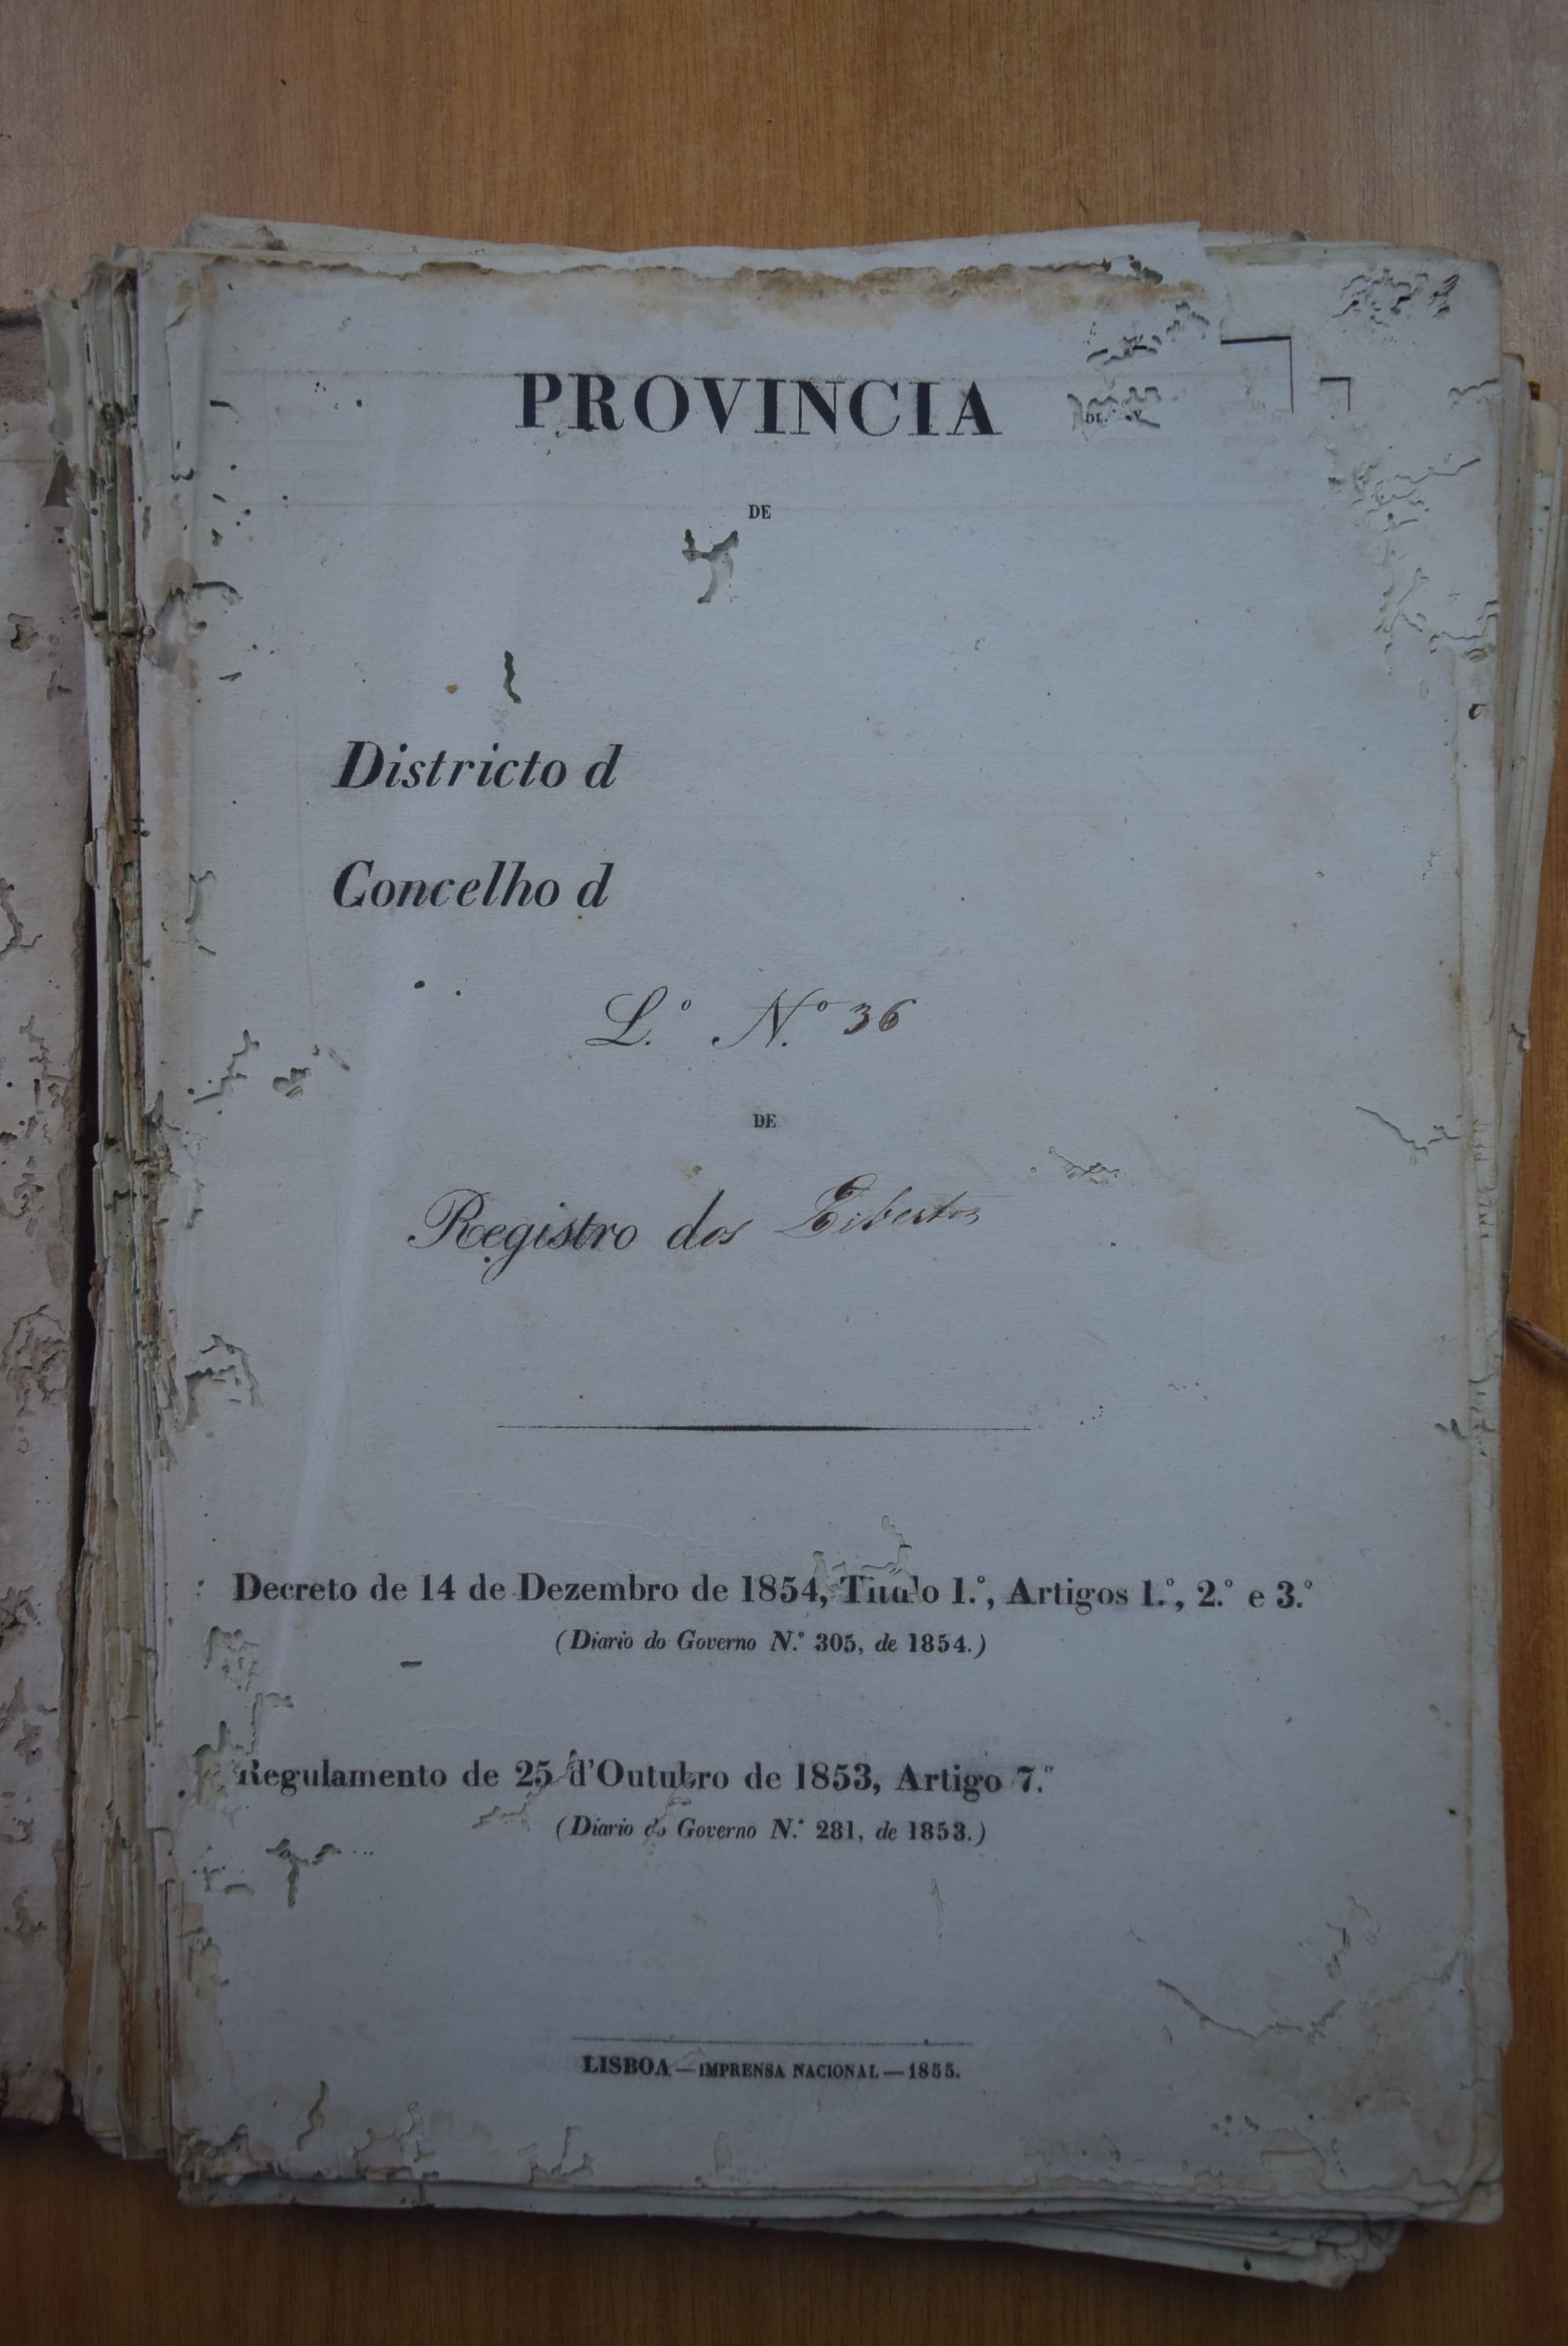 PROVINCIA
DE
Districto d
Concelho d
L.º N.º 36
DE
Registro dos Libertos
Decreto de 14 de Dezembro de 1854, Titulo 1.º, Artigos 1.º, 2.º e 3.º
(Diario do Governo N.º 305, de 1854.)
Regulamento de 25 d'Outubro de 1853, Artigo 7.º
(Diario do Governo N.º 281, de 1853.)
LISBOA — IMPRENSA NACIONAL — 1855.